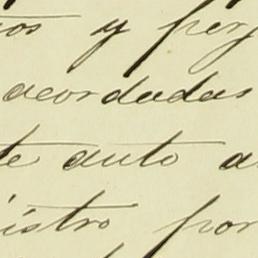 tos y perj
acordadas
te auto a
istro por